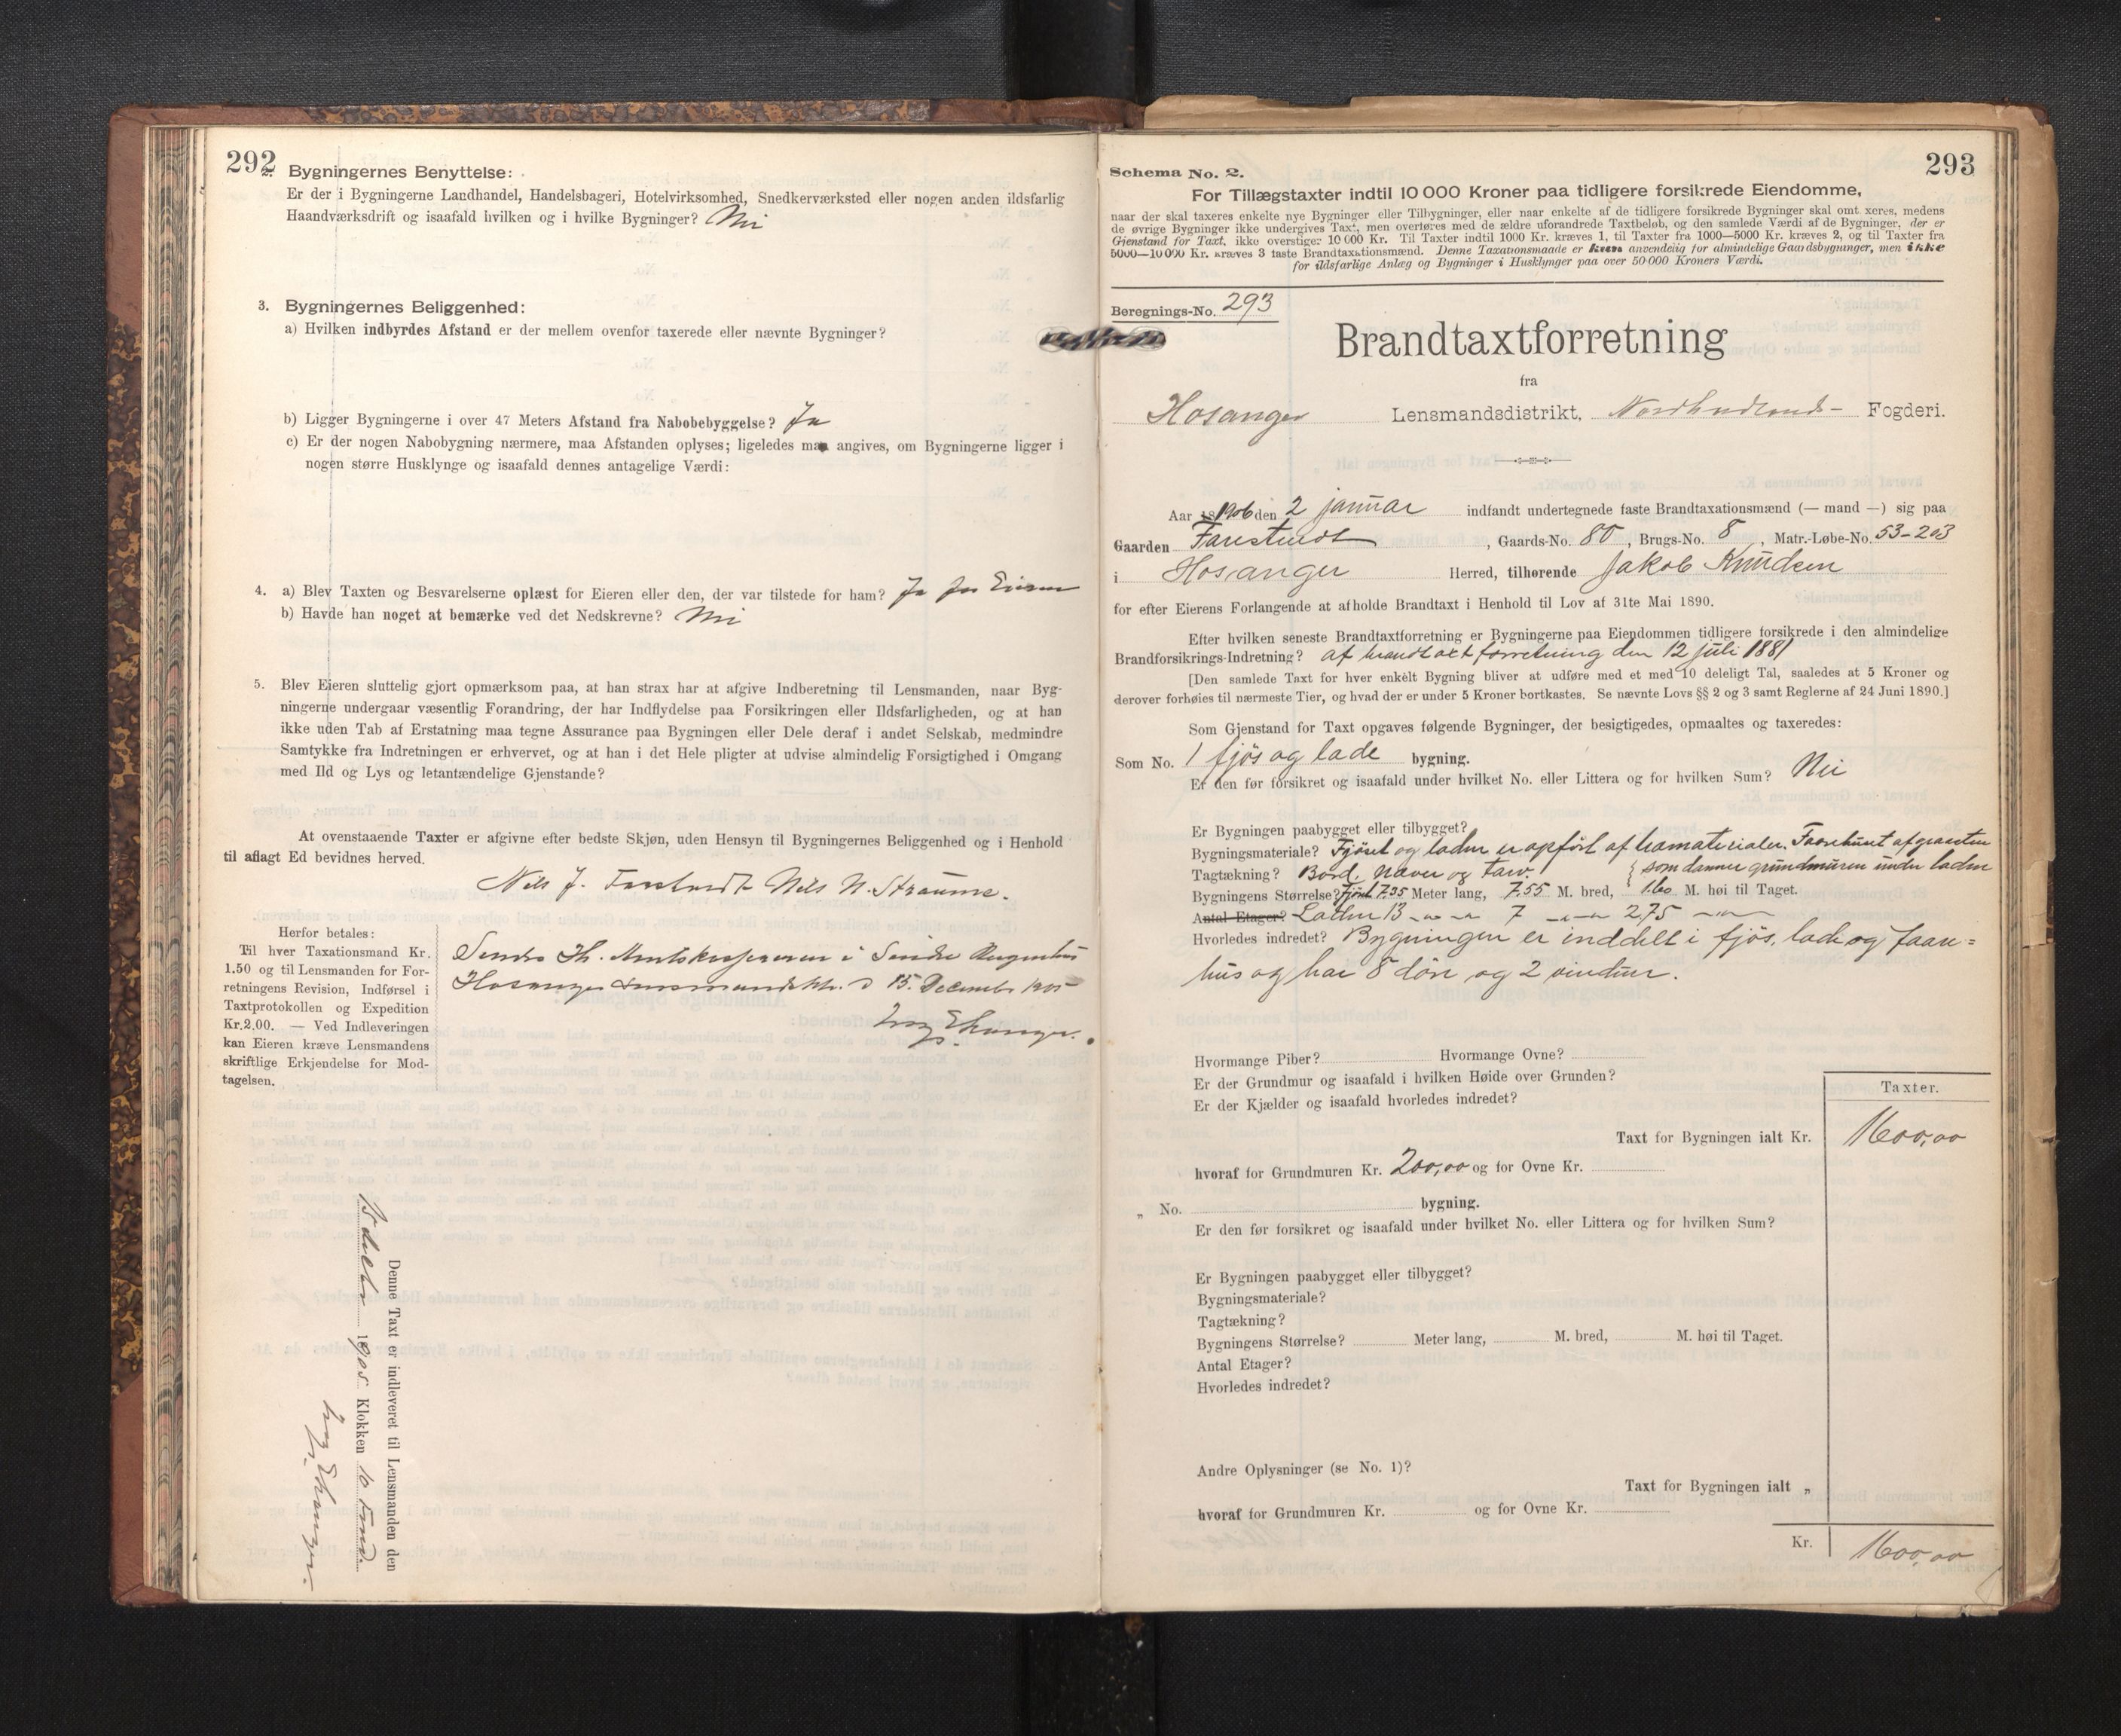 292
2. Bygningernes Benyttelse:
Er der i Bygningerne Landhandel, Handelsbageri, Hotelvirksomhed, Snedkerværksted eller nogen anden ildsfarlig
Haandværksdrift og isaafald hvilken og i hvilke Bygninger? Nei
3. Bygningernes Beliggenhed:
a) Hvilken indbyrdes Afstand er der mellem ovenfor taxerede eller nævnte Bygninger?
b) Ligger Bygningerne i over 47 Meters Afstand fra Nabobebyggelse? Ja
c) Er der nogen Nabobygning nærmere, maa Afstanden oplyses; ligeledes maa angives, om Bygningerne ligger i
nogen større Husklynge og isaafald dennes antagelige Værdi:
4. a) Blev Taxten og Besvarelserne oplæst for Eieren eller den, der var tilstede for ham? Ja for Eieren
b) Havde han noget at bemærke ved det Nedskrevne? Nei
5. Blev Eieren sluttelig gjort opmærksom paa, at han strax har at afgive Indberetning til Lensmanden, naar Byg-
ningerne undergaar væsentlig Forandring, der har Indflydelse paa Forsikringen eller Ildsfarligheden, og at han
ikke uden Tab af Erstatning maa tegne Assurance paa Bygningen eller Dele deraf i andet Selskab, medmindre
Samtykke fra Indretningen er erhvervet, og at han i det Hele pligter at udvise almindelig Forsigtighed i Omgang
med Ild og Lys og letantændelige Gjenstande?
At ovenstaaende Taxter er afgivne efter bedste Skjøn, uden Hensyn til Bygningernes Beliggenhed og i Henhold
til aflagt Ed bevidnes herved.
Nils J. Farestvedt Nils N. Straume.
Herfor betales:
Til hver Taxationsmand Kr.
1.50 og til Lensmanden for For-
retningens Revision, Indførsel i
Taxtprotokollen og Expedition
Kr. 2.00. — Ved Indleveringen
kan Eieren kræve Lensmandens
skriftlige Erkjendelse for Mod-
tagelsen.
Sendes Hr. Amtskassereren i Søndre Bergenhus
Hosanger 15. December 1905
Denne Taxt er indleveret til Lensmanden den
1905 Klokken 10 Form.
293
Schema No. 2.
For Tillægstaxter indtil 10 000 Kroner paa tidligere forsikrede Eiendomme,
naar der skal taxeres enkelte nye Bygninger eller Tilbygninger, eller naar enkelte af de tidligere forsikrede Bygninger skal omt xeres, medens
de øvrige Bygninger ikke undergives Taxt, men overtøres med de ældre uforandrede Taxtbeløb, og den samlede Værdi af de Bygninger, der er
Gjenstand for Taxt, ikke overstiger 10 000 Kr. Til Taxter indtil 1000 Kr. kræves 1, til Taxter fra 1000—5000 Kr. kræves 2, og til Taxter fra
5000—10 000 Kr. kræves 3 faste Brandtaxationsmænd. Denne Taxationsmaade er kun anvendelig for almindelige Gaardsbygninger, men ikke
for ildsfarlige Anlæg og Bygninger i Husklynger paa over 50 000 Kroners Værdi.
Beregnings-No. 293
Brandtaxtforretning
fra
Hosanger Lensmandsdistrikt, Nordhordlands- Fogderi.
Aar 1906 den 2 januar indfandt undertegnede faste Brandtaxationsmænd (— mand —) sig paa
Gaarden Farestvedt, Gaards-No. 80, Brugs-No. 8, Matr.-Løbe-No. 53-203
i Hosanger Herred, tilhørende Jakob Knudsen
for efter Eierens Forlangende at afholde Brandtaxt i Henhold til Lov af 31te Mai 1890.
Efter hvilken seneste Brandtaxtforretning er Bygningerne paa Eiendommen tidligere forsikrede i den almindelige
Brandforsikrings-Indretning? af brandtaxtforretning den 12 juli 1881
[Den samlede Taxt for hver enkelt Bygning bliver at udføre med et med 10 deleligt Tal, saaledes at 5 Kroner og
derover forhøies til nærmeste Tier, og hvad der er under 5 Kroner bortkastes. Se nævnte Lovs §§ 2 og 3 samt Reglerne af 24 Juni 1890.]
Som Gjenstand for Taxt opgaves følgende Bygninger, der besigtigedes, opmaaltes og taxeredes:
Som No. 1 fjøs og lade bygning.
Er den før forsikret og isaafald under hvilket No. eller Littera og for hvilken Sum? Nei
Er Bygningen paabygget eller tilbygget?
Bygningsmateriale? Fjøset og laden er opført af træmaterialer. Faarehuset af graasten
Tagtækning? Bord, næver og tørv. { som danner grundmuren under laden
Bygningens Størrelse? Fjøset 7.35 Meter lang, 7.55 M. bred, 1.60 M. høi til Taget.
Antal Etager? Laden 13 -"- -"- 7 -"- -"- 2,75 -"-
Hvorledes indredet? Bygningen er inddelt i fjøs, lade og faare=
hus og har 8 døre og 2 vinduer.
Hvormange Piber? Hvormange Ovne?
Er der Grundmur og isaafald i hvilken Høide over Grunden?
Er der Kjælder og isaafald hvorledes indredet?
Taxter.
Taxt for Bygningen ialt Kr. 1600,00
hvoraf for Grundmuren Kr. 200,00 og for Ovne Kr.
„ No. bygning.
Er den før forsikret og isaafald under hvilket No. eller Littera og for hvilken Sum?
Er Bygningen paabygget eller tilbygget?
Bygningsmateriale?
Tagtækning?
Bygningens Størrelse? Meter lang, M. bred, M. høi til Taget.
Antal Etager?
Hvorledes indredet?
Andre Oplysninger (se No. 1)?
Taxt for Bygningen ialt „
hvoraf for Grundmuren Kr. og for Ovne Kr.
Kr. 1600,00